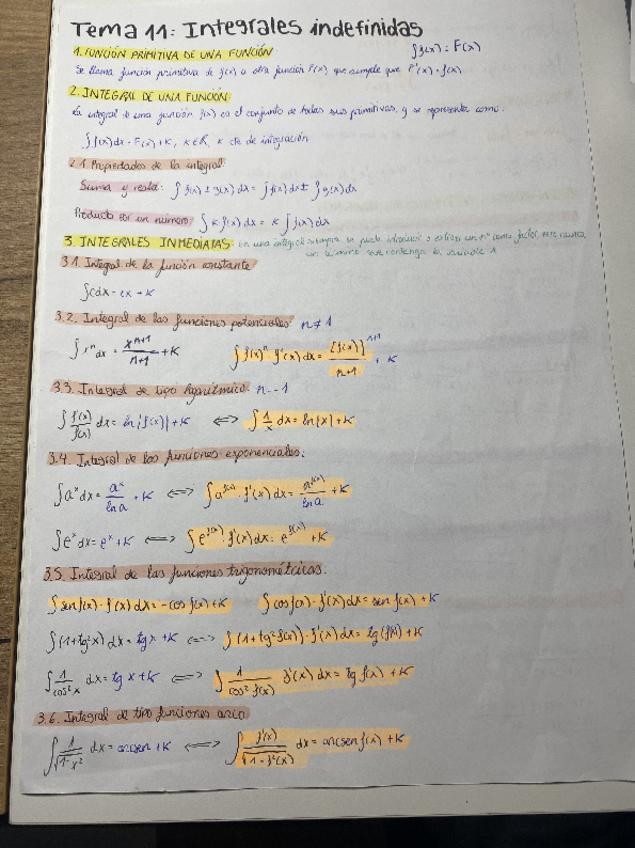 Tema 11: Integrales indefinidas
1. FUNCIÓN PRIMITIVA DE UNA FUNCIÓN ∫f(x) = F(x)
Se llama función primitiva de f(x) a otra función F(x) que cumple que F'(x) = f(x).
2. INTEGRAL DE UNA FUNCIÓN
La integral de una función f(x) es el conjunto de todas sus primitivas, y se representa como:
∫f(x)dx = F(x) + K, K∈ℝ, K cte de integración
2.1. Propiedades de la integral:
Suma y resta: ∫f(x) ± g(x) dx = ∫f(x) dx ± ∫g(x) dx
Producto por un número: ∫K f(x) dx = K ∫f(x) dx
3. INTEGRALES INMEDIATAS: en una integral siempre se puede introducir o extraer un nº como factor, pero nunca
un término que contenga la variable
3.1. Integral de la función constante
∫c dx = cx + K
3.2. Integral de las funciones potenciales n ≠ 1
∫xⁿ dx = xⁿ⁺¹/n+1 + K ∫f(x)ⁿ · f'(x) dx = [f(x)]ⁿ⁺¹/n+1 + K
3.3. Integral de tipo logarítmico. n = -1
∫f'(x)/f(x) dx = ln|f(x)| + K ⟺ ∫1/x dx = ln|x| + K
3.4. Integral de las funciones exponenciales:
∫aˣ dx = aˣ/ln a + K ⟺ ∫a^f(x) · f'(x) dx = a^f(x)/ln a + K
∫eˣ dx = eˣ + K ⟺ ∫e^f(x) · f'(x) dx = e^f(x) + K
3.5. Integral de las funciones trigonométricas:
∫sen f(x) · f'(x) dx = -cos f(x) + K ∫cos f(x) · f'(x) dx = sen f(x) + K
∫(1+tg²x) dx = tg x + K ⟺ ∫(1+tg²f(x)) · f'(x) dx = tg (f(x)) + K
∫1/cos²x dx = tg x + K ⟺ ∫1/cos²f(x) f'(x) dx = tg f(x) + K
3.6. Integral de tipo funciones arco
∫1/√1-x² dx = arcsen + K ⟺ ∫f'(x)/√1-f²(x) dx = arcsen f(x) + K